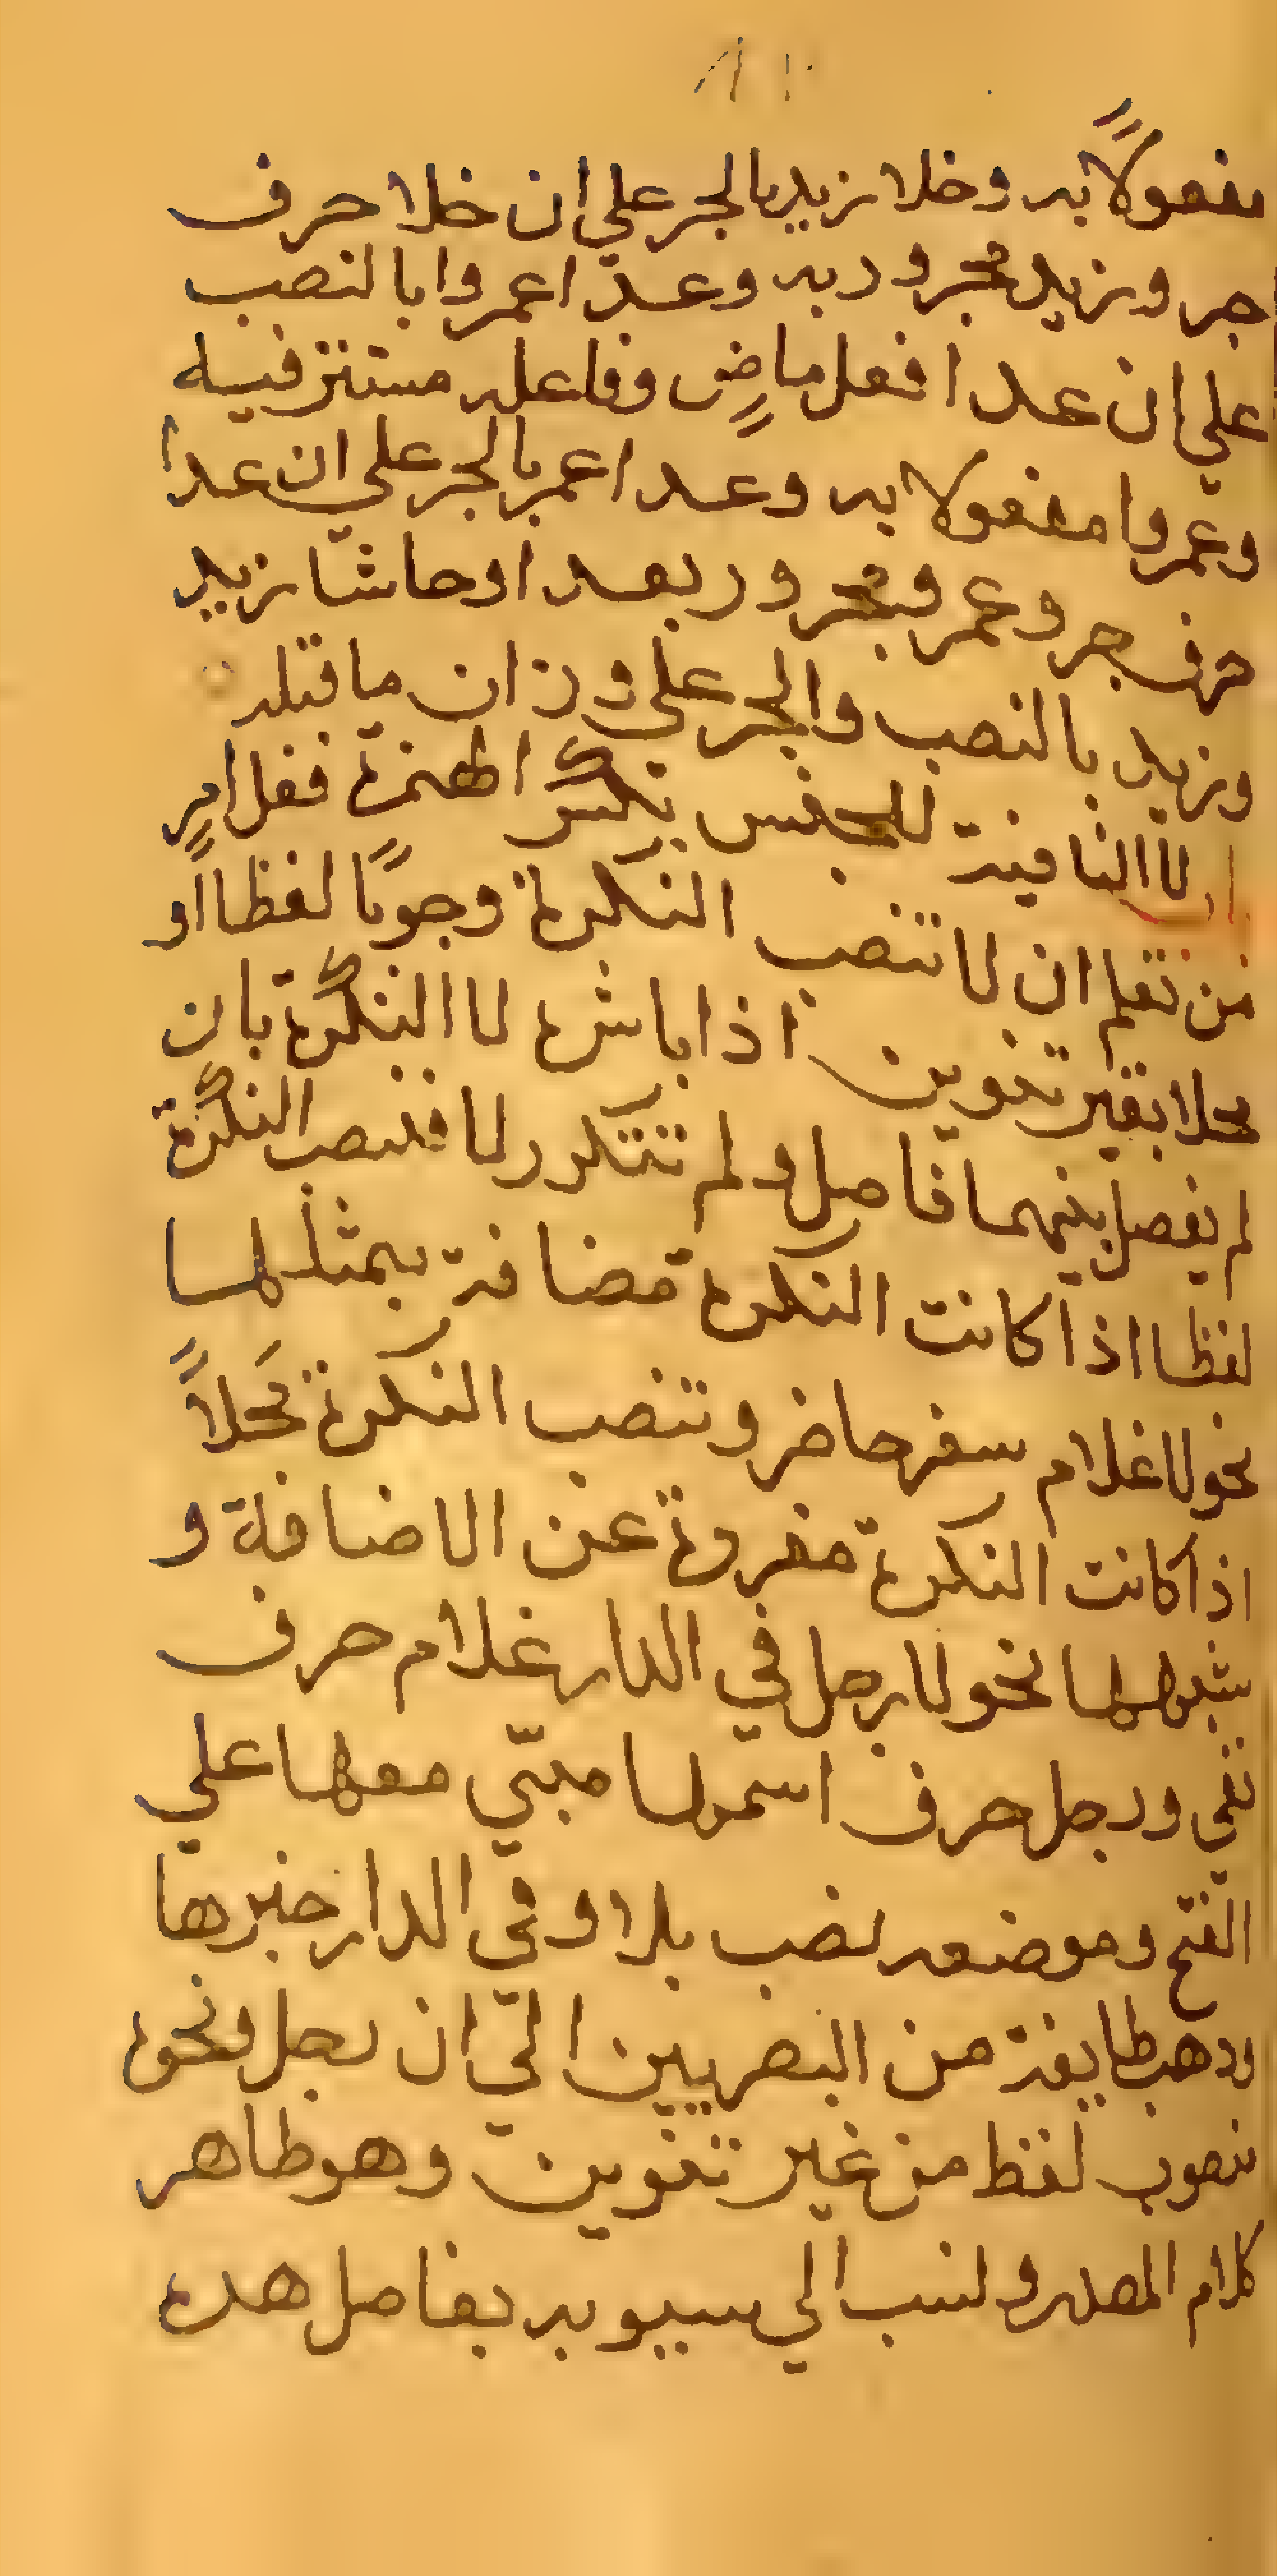 مفعولاً به وخلا زيد بالجر علي ان خلا حرف
جر وزيد مجرور به وعدّا عمروا بالنصب
علي ان عدا فعل ماضٍ وفاعله مستتر فيه
وعمروا مفعولا به وعدا عمر بالجر علي ان عدا
حرف جر وعمرو مجرور بعد اوحاشا زيد
وزيد بالنصب والجر علي وزان ما قبله
لا النافية للجنس بكسر الهمزة فعل امرٍ
من تعلم ان لا تنصب النكرة وجوبًا لفظا أو
محلا بغير تنوين اذا باشرة لا النكرة بان
لم يفصل بينهما فاصل ولم تتكرر لا فتنصب النكرة
لفظا اذا كانت النكرة مضافة بمثلها
نحو لا غلام سفر حاضر وتنصب النكرة مَحلاً
اذا كانت النكرة مفردة عن الاضافة و
شبهها نحو لا رجل في الدار غلام حرف
نفي ورجل حرف اسمها مبنّي معها علي
الفتح وموضعه نصب بلا وفي الدار خبرها
وذهب طايفة من البصريين الي ان رجل ونحوه
منصوب لفظ من غير تنوين وهو ظاهر
كلام المصنف ونسب الي سيبويه بفاصل هده